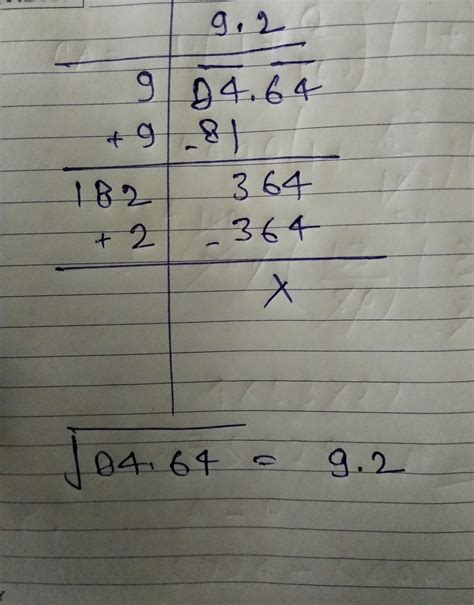 9.2
9 84.64
+ 9 - 81
182 364
+ 2 - 364
X
√84.64 = 9.2